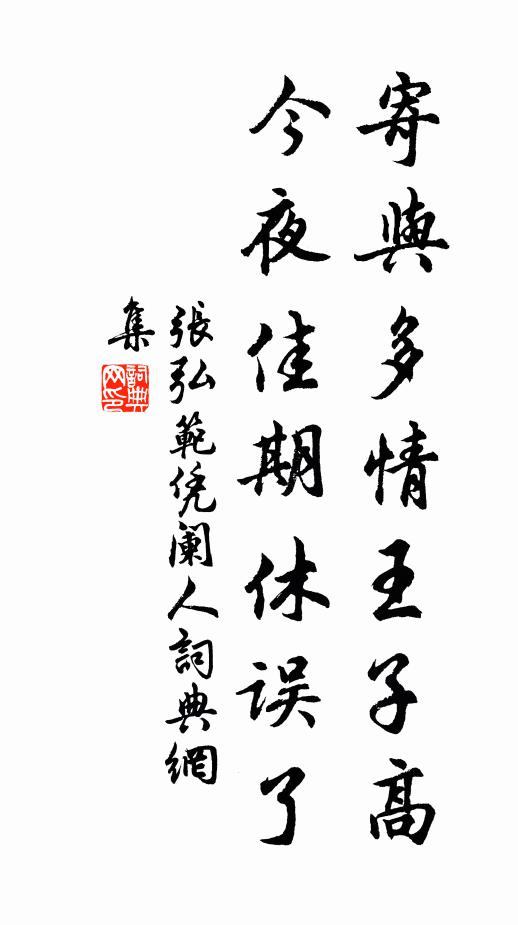 寄與多情王子高
今夜佳期休误了
張弘範凭阑人詞典網
集
詞典网印